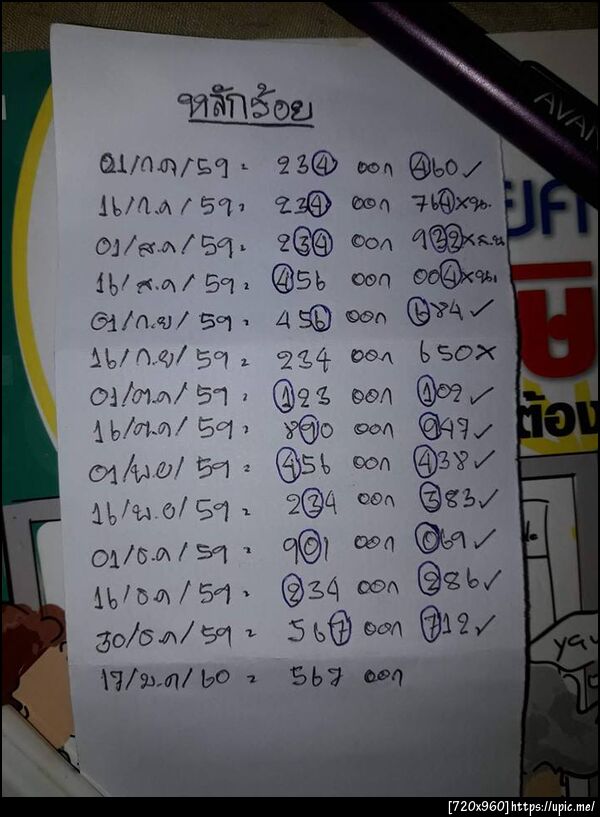 หลักร้อย
01/ก.ค/59 = 234 ออก 460 ✓
16/ก.ค/59 = 234 ออก 764 × น.
01/ส.ค/59 = 234 ออก 932 × ส.น
16/ส.ค/59 = 456 ออก 004 × น.
01/ก.ย/59 = 456 ออก 684 ✓
16/ก.ย/59 = 234 ออก 650 ×
01/ต.ค/59 = 123 ออก 102 ✓
16/ต.ค/59 = 890 ออก 947 ✓
01/พ.ย/59 = 456 ออก 438 ✓
16/พ.ย/59 = 234 ออก 383 ✓
01/ธ.ค/59 = 901 ออก 069 ✓
16/ธ.ค/59 = 234 ออก 286 ✓
30/ธ.ค/59 = 567 ออก 712 ✓
17/ม.ค/60 = 567 ออก
AVAN
ต้อง
[720x960]https://upic.me/